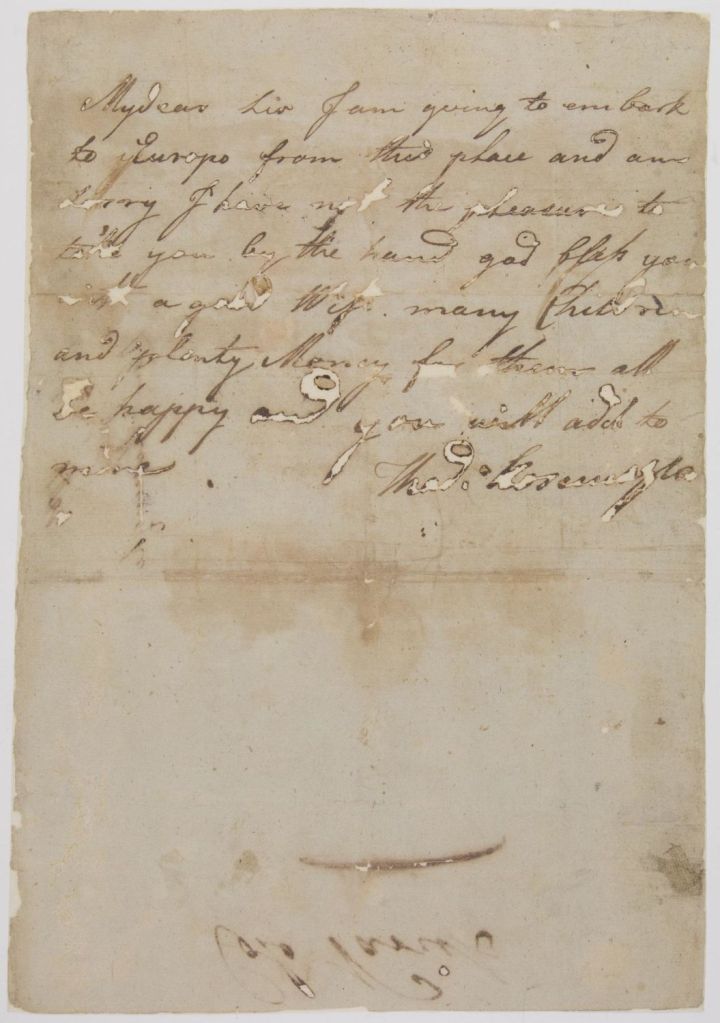 My dear Sir I am going to embark
to Europe from this place and am
sorry I have not the pleasure to
take you by the hand god bless you
with a good Wife. many Children
and plenty Money for them all
be happy and you will add to
mine
Thad. Kosciuszko